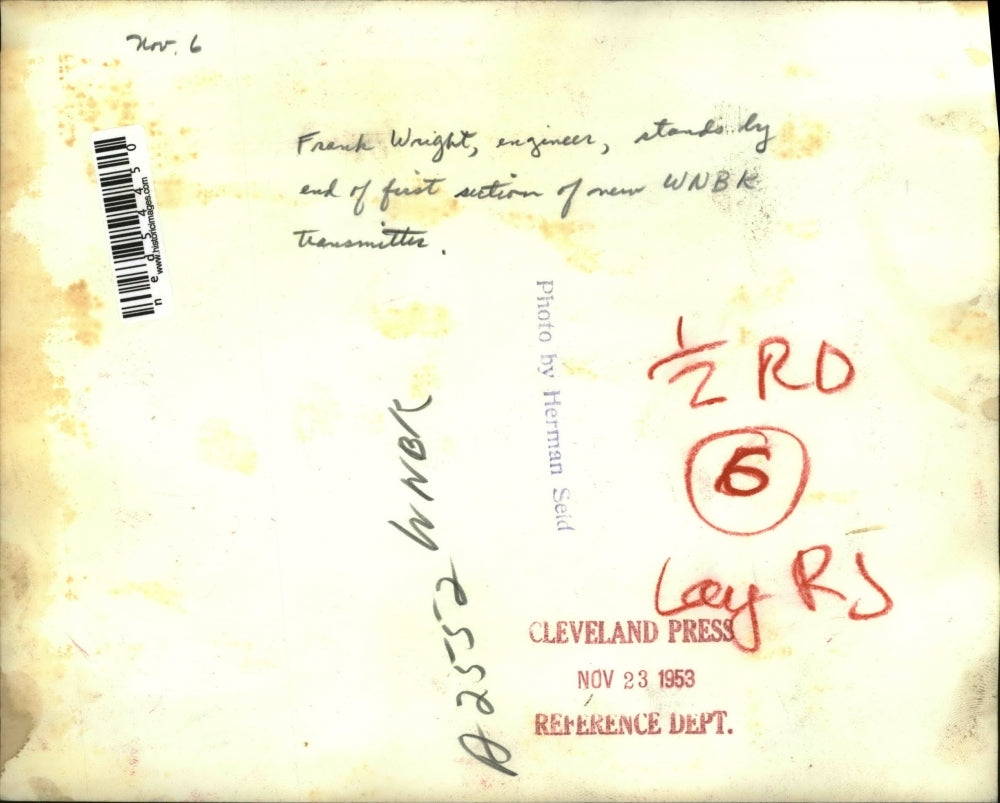 Nov. 6
Frank Wright, engineer, stands by
end of first section of new WNBK
transmitter.
ned54450
www.historicimages.com
Photo by Herman Seid
1/2 RD
6
A2552 WNBK
CLEVELAND PRESS
NOV 23 1953
REFERENCE DEPT.